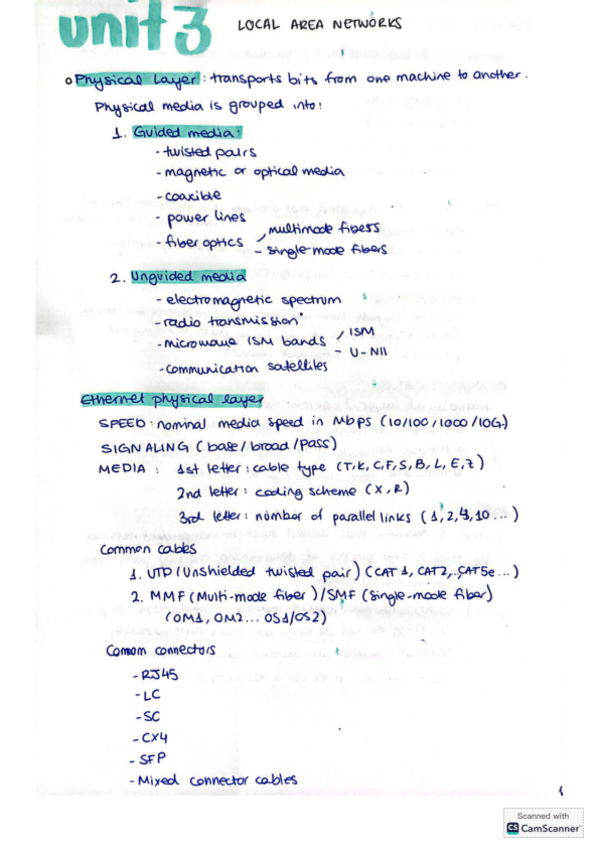 unit 3 LOCAL AREA NETWORKS
o Physical Layer: transports bits from one machine to another.
Physical media is grouped into:
1. Guided media:
- twisted pairs
- magnetic or optical media
- coaxible
- power lines
- fiber optics / multimode fibers
- single-mode fibers
2. Unguided media
- electromagnetic spectrum
- radio transmission
- microwave ISM bands / ISM
- U-NII
- communication satellites
Ethernet physical layer
SPEED: nominal media speed in Mbps (10/100/1000/10G)
SIGNALING (base/broad/pass)
MEDIA: 1st letter: cable type (T,K,C,F,S,B,L,E,Z)
2nd letter: coding scheme (X,R)
3rd letter: number of parallel links (1,2,4,10...)
Common cables
1. UTP (Unshielded twisted pair) (CAT1, CAT2,..CAT5e...)
2. MMF (Multi-mode fiber)/SMF (Single-mode fiber)
(OM1, OM2... OS1/OS2)
Comom connectors
- RJ45
- LC
- SC
- CX4
- SFP
- Mixed connector cables
1
Scanned with
CS CamScanner